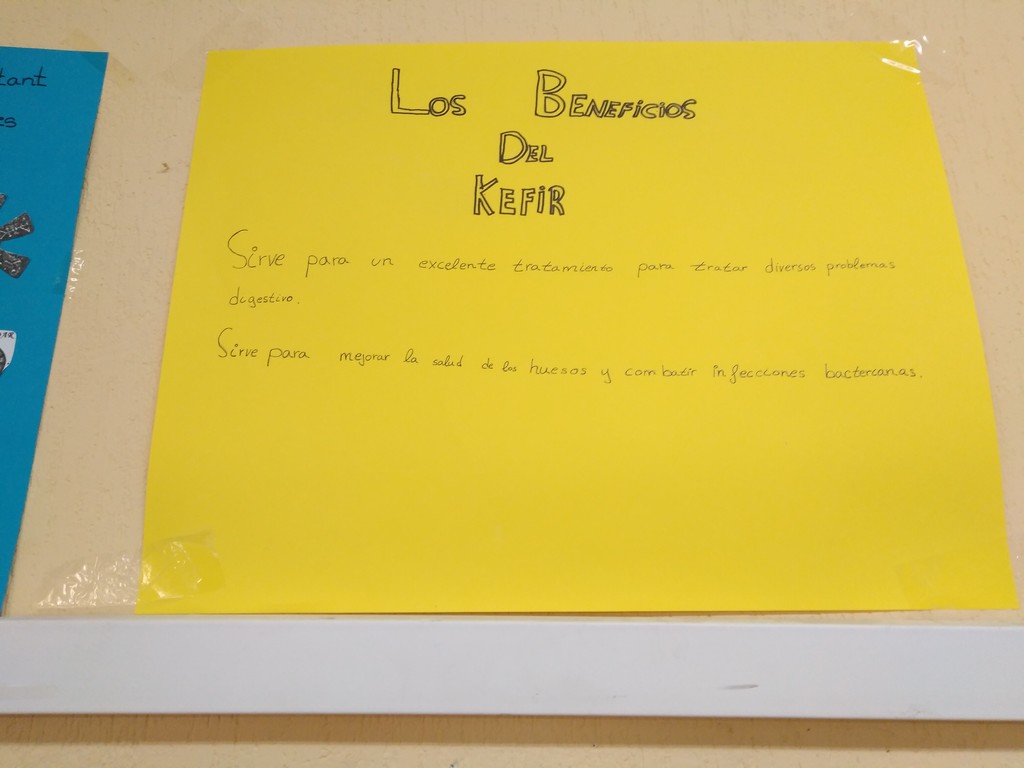 tant
es
Los Beneficios
Del
Kefir
Sirve para un excelente tratamiento para tratar diversos problemas
digestivo.
Sirve para mejorar la salud de los huesos y combatir infecciones bacterianas.